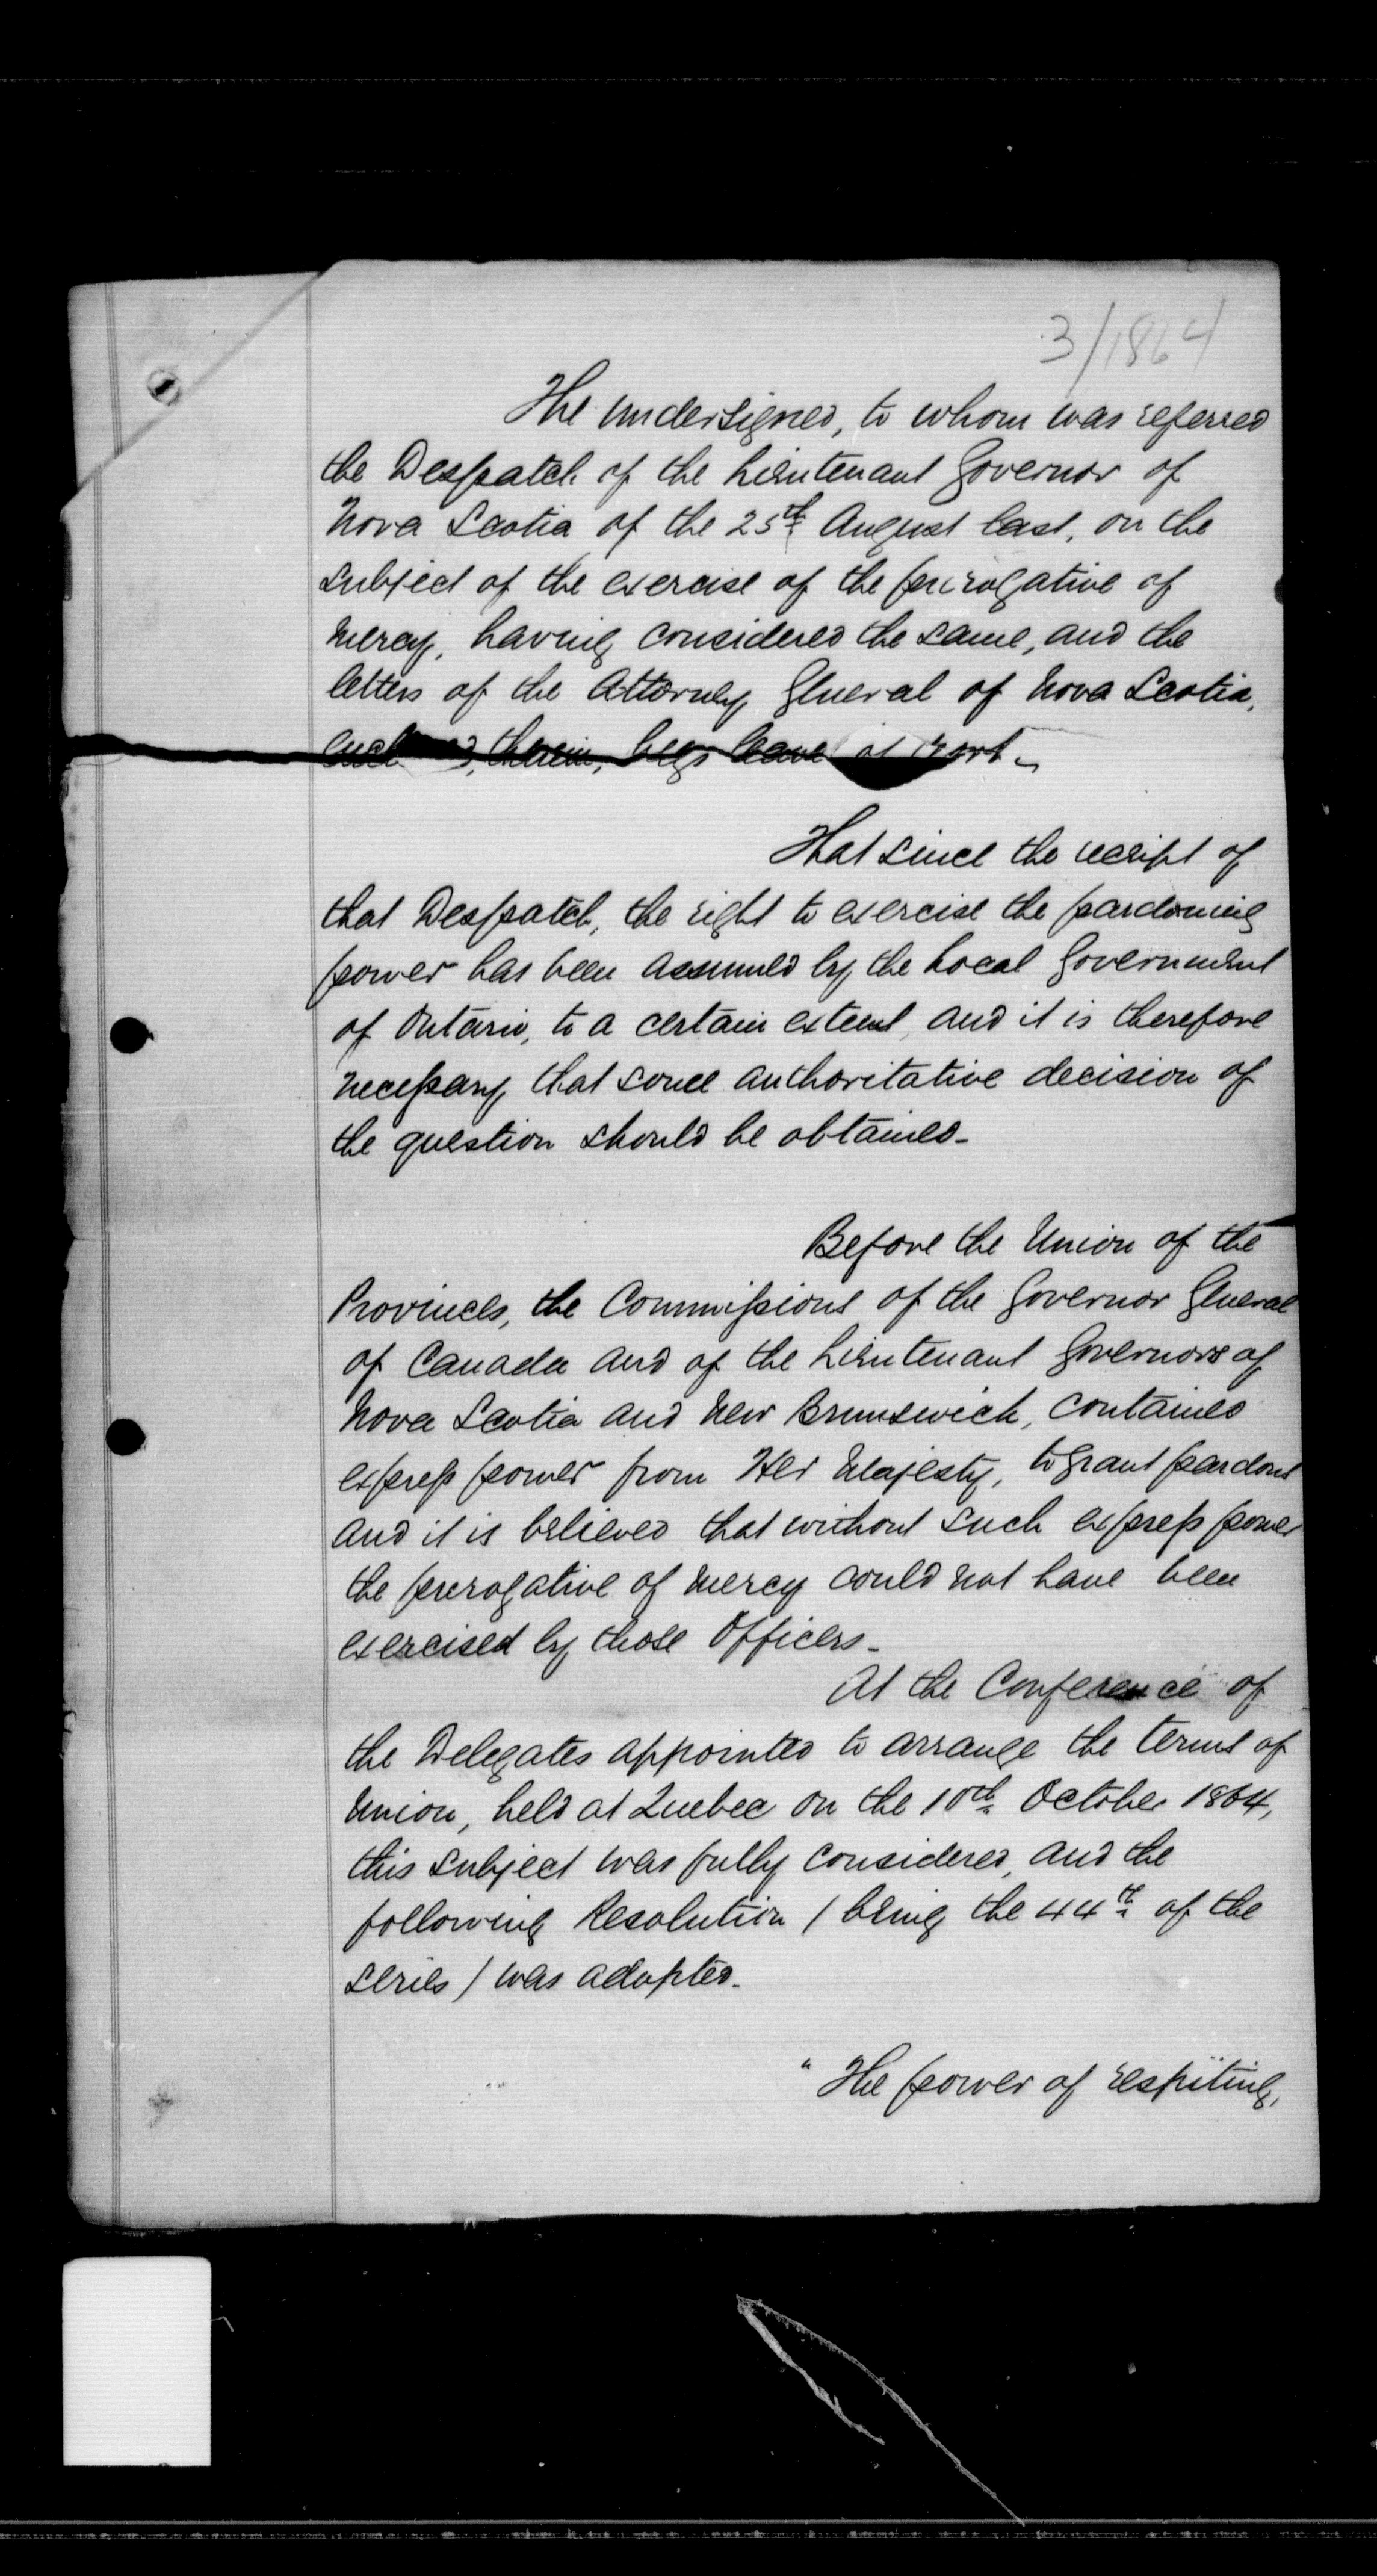 3/1864
The undersigned, to whom was referred
the Despatch of the Lieutenant Governor of
Nova Scotia of the 25th August last, on the
subject of the exercise of the prerogative of
mercy, having considered the same, and the
letters of the Attorney General of Nova Scotia,
therein, begs leave
That since the receipt of
that Despatch, the right to exercise the pardoning
power has been assumed by the Local Government
of Ontario, to a certain extent, and it is therefore
necessary that some authoritative decision of
the question should be obtained_
Before the Union of the
Provinces, the Commissions of the Governor General
of Canada and of the Lieutenant Governors of
Nova Scotia and New Brunswick, contained
express power from Her Majesty, to grant pardons
and it is believed that without such express power
the prerogative of mercy could not have been
exercised by those Officers_
At the Conference of
the Delegates appointed to arrange the terms of
Union, held at Quebec on the 10th October 1864,
this subject was fully considered, and the
following Resolution / being the 44th of the
series / was adopted_
"The power of respiting,